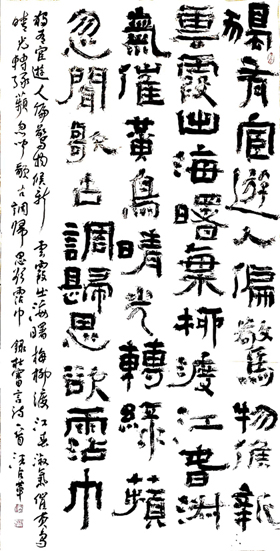 獨有宦遊人偏驚物候新
雲霞出海曙梅柳渡江春淑
氣催黃鳥晴光轉綠蘋
忽聞歌古調歸思欲霑巾
獨有宦遊人偏驚物候新雲霞出海曙梅柳渡江春淑氣催黃鳥
晴光轉綠蘋忽聞歌古調歸思欲霑巾 錄杜審言詩一首